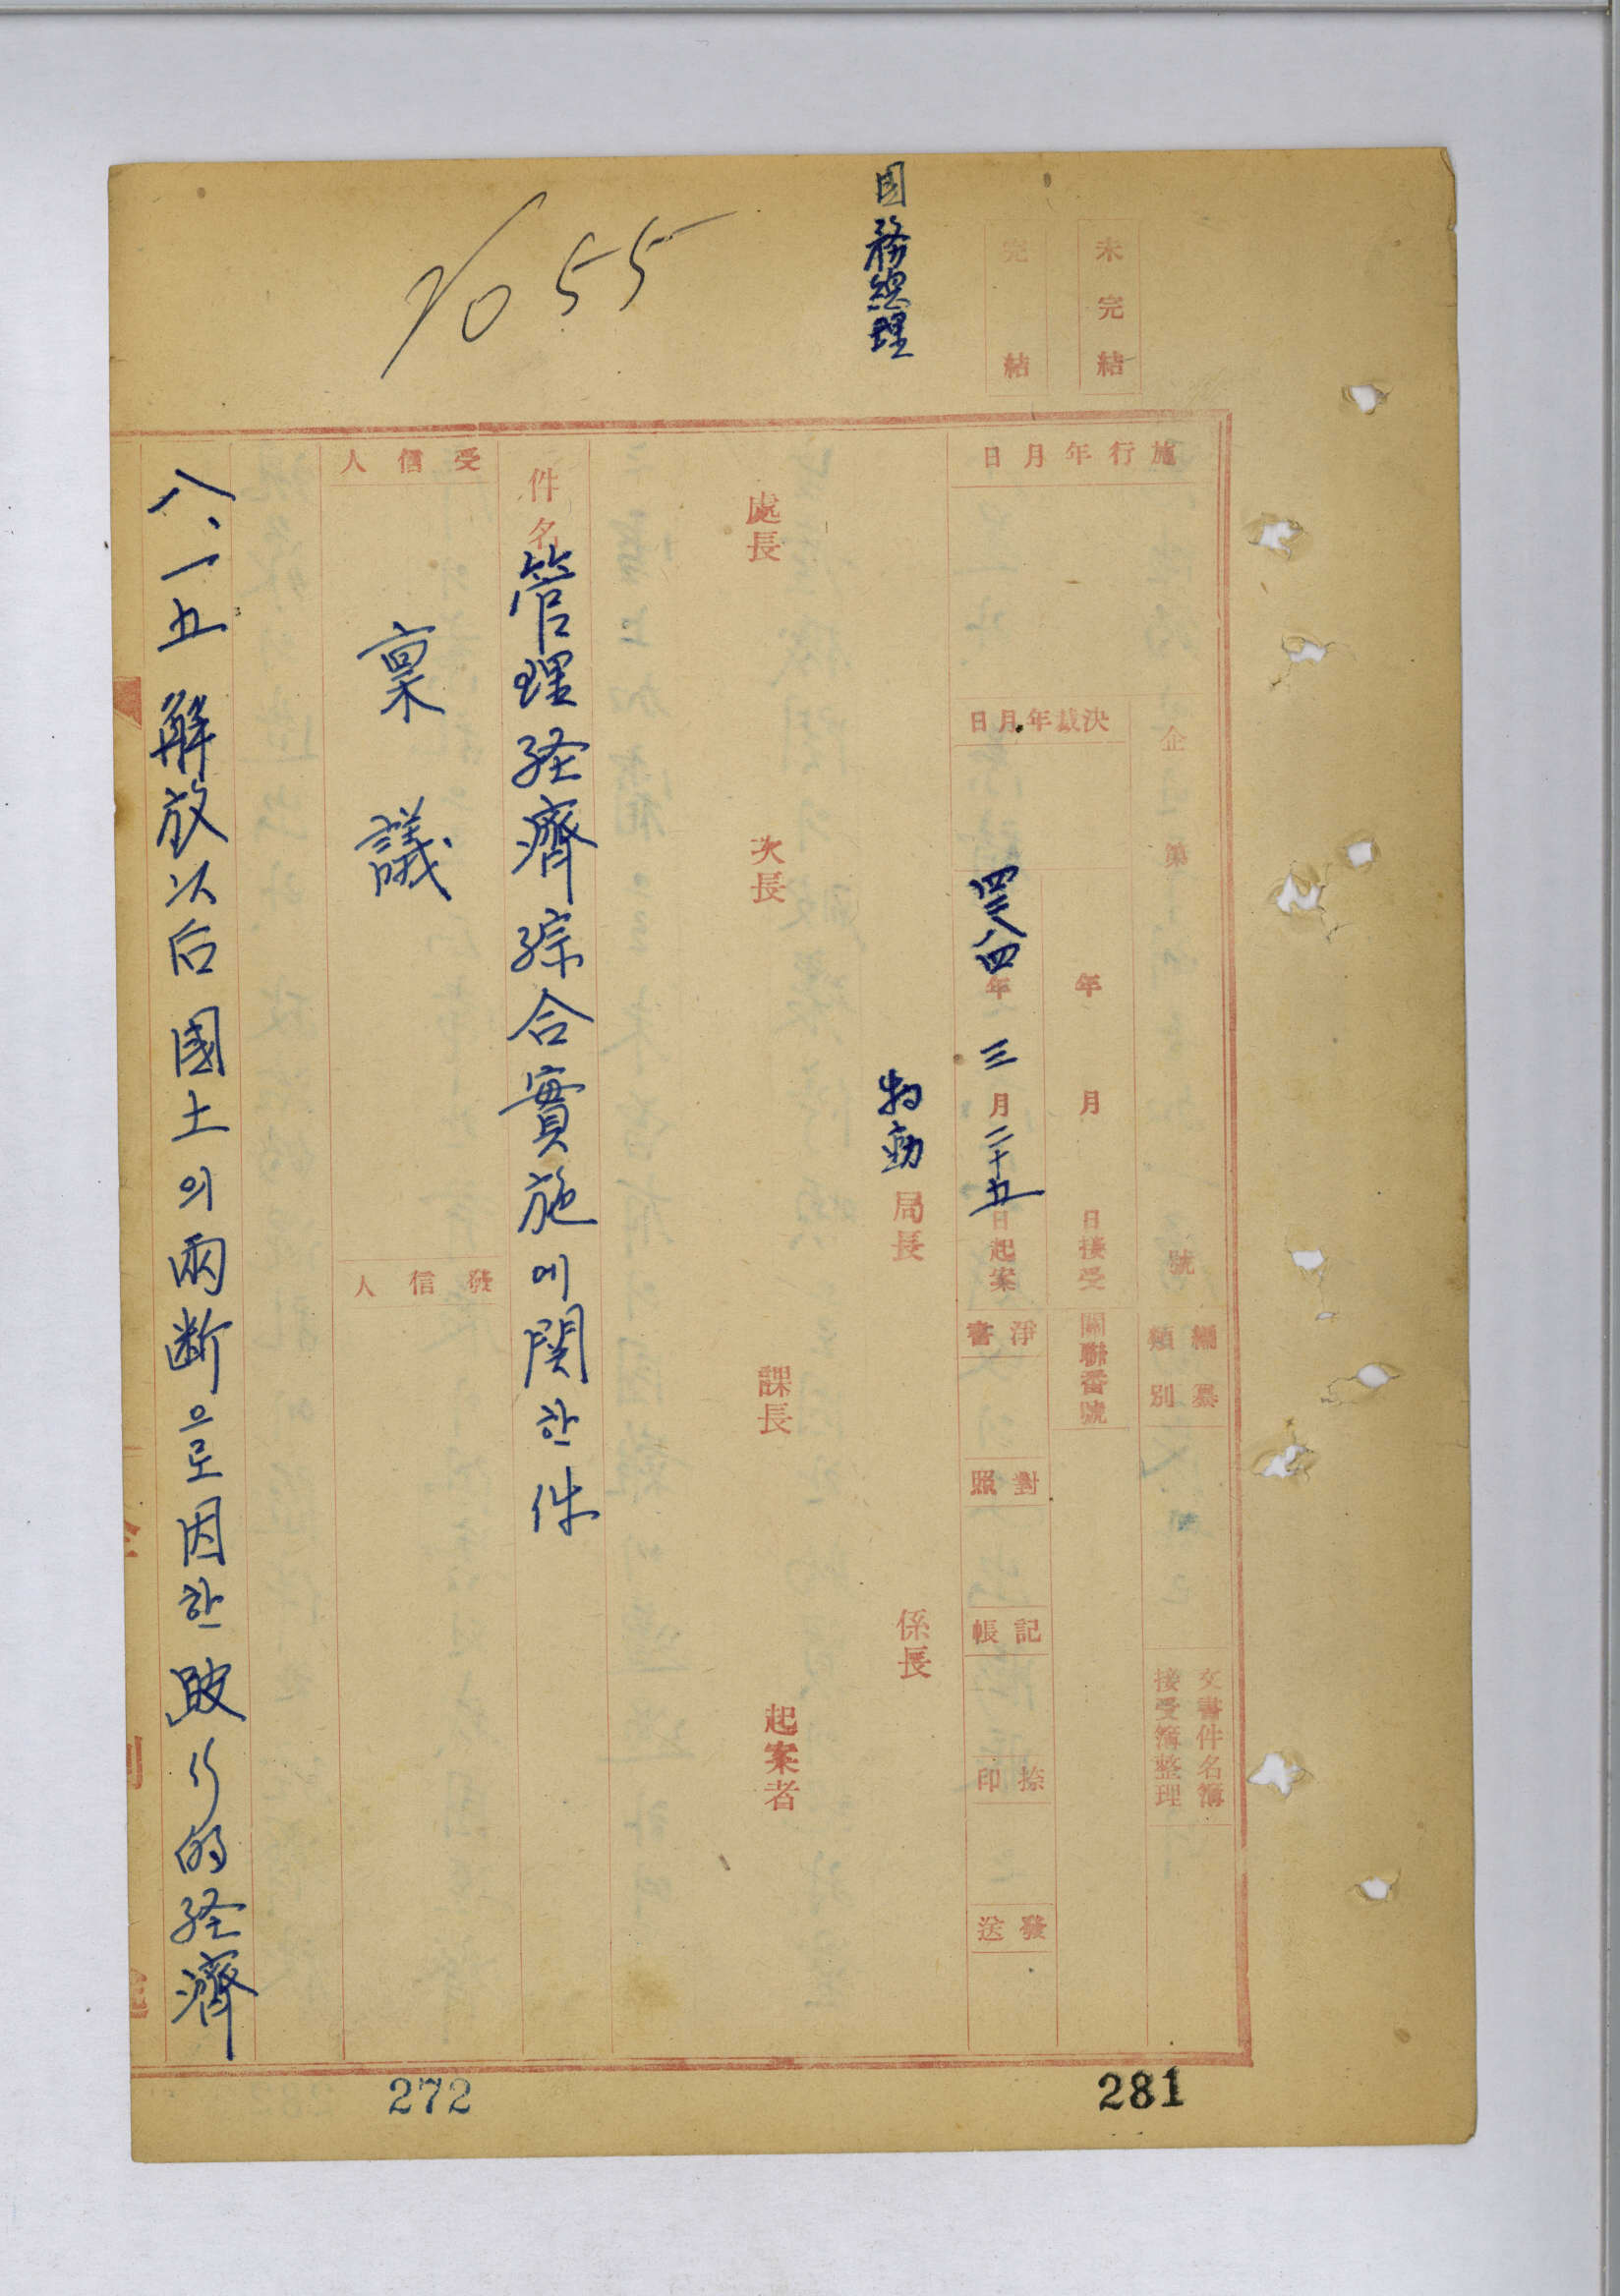 未完結
完結
國務總理
No 55
企 第 號
編纂類別
文書件名簿接受簿整理
年 月 日接受
關聯番號
施行年月日
決裁年月日
四二八四年 三月二十五日起案
淨書
對照
記帳
捺印
發送
物動局長
係長
處長
次長
課長
起案者
件名 管理経濟綜合實施에関한件
受信人
稟議
發信人
八、一五 解放以后 國土의 兩断으로因한 跛行的経濟
272
281